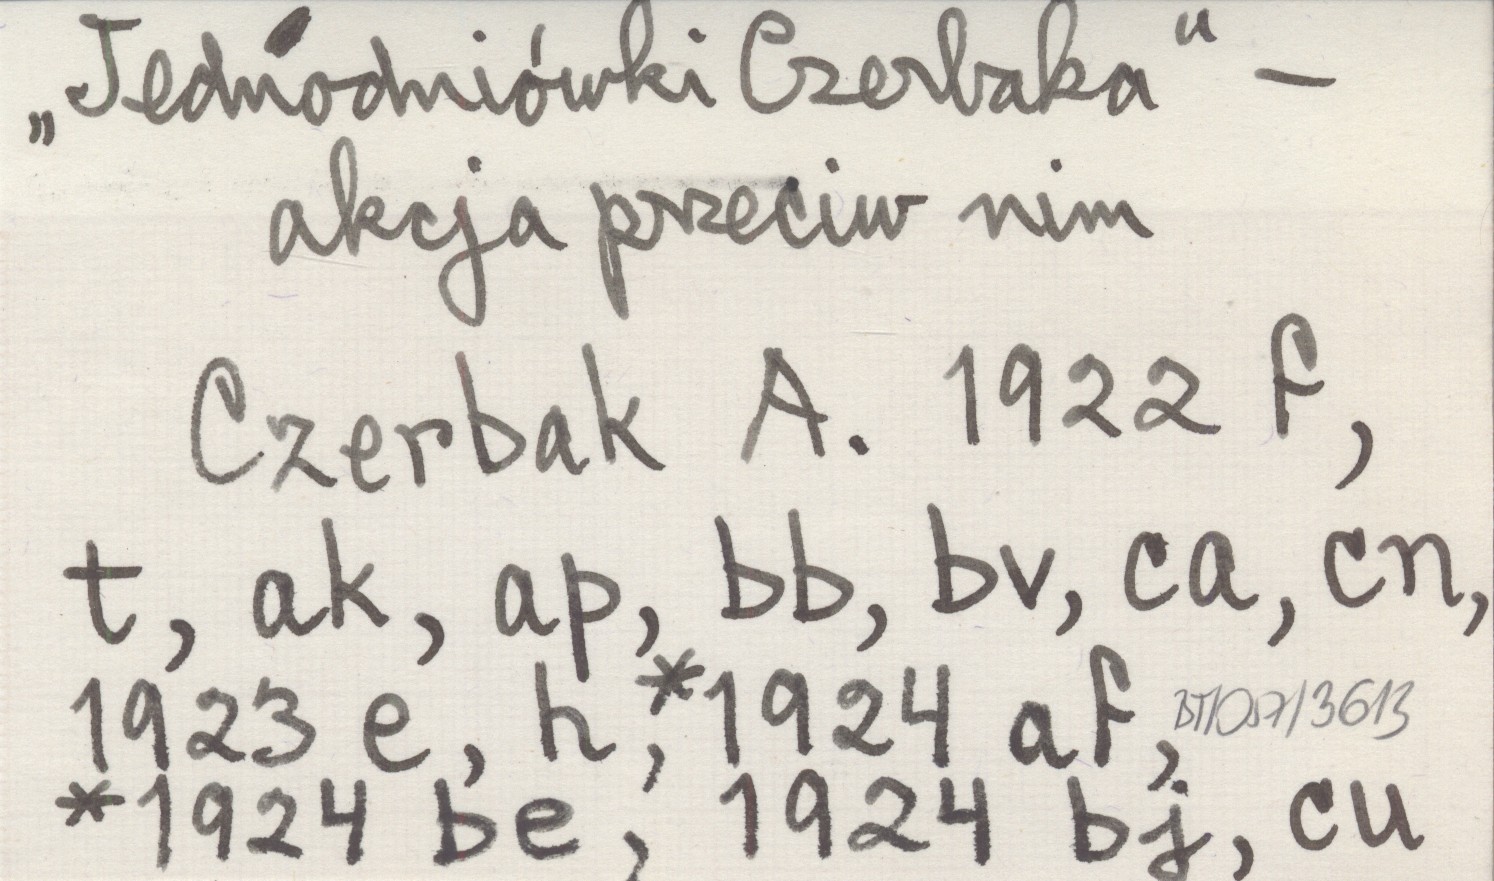 „Jednodniówki Czerbaka" –
akcja przeciw nim
Czerbak A. 1922 f,
t, ak, ap, bb, bv, ca, cn,
1923 e, h, *1924 af,
*1924 be, 1924 bj, cu